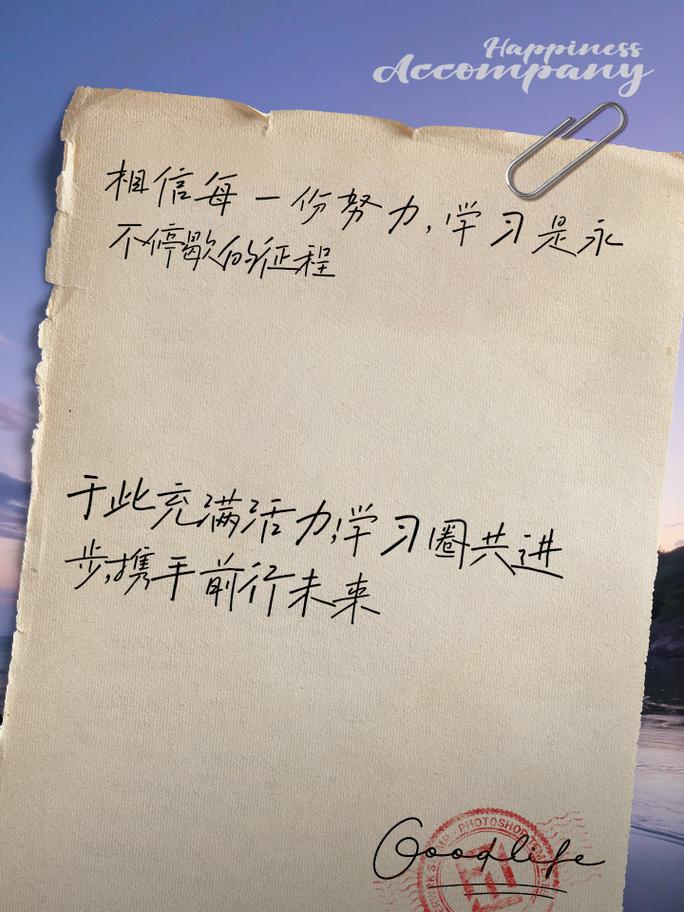 Happiness
Accompany
相信每一份努力,学习是永
不停歇的征程
于此充满活力,学习圈共进
步,携手前行未来
PHOTOSHOP
Goodlife